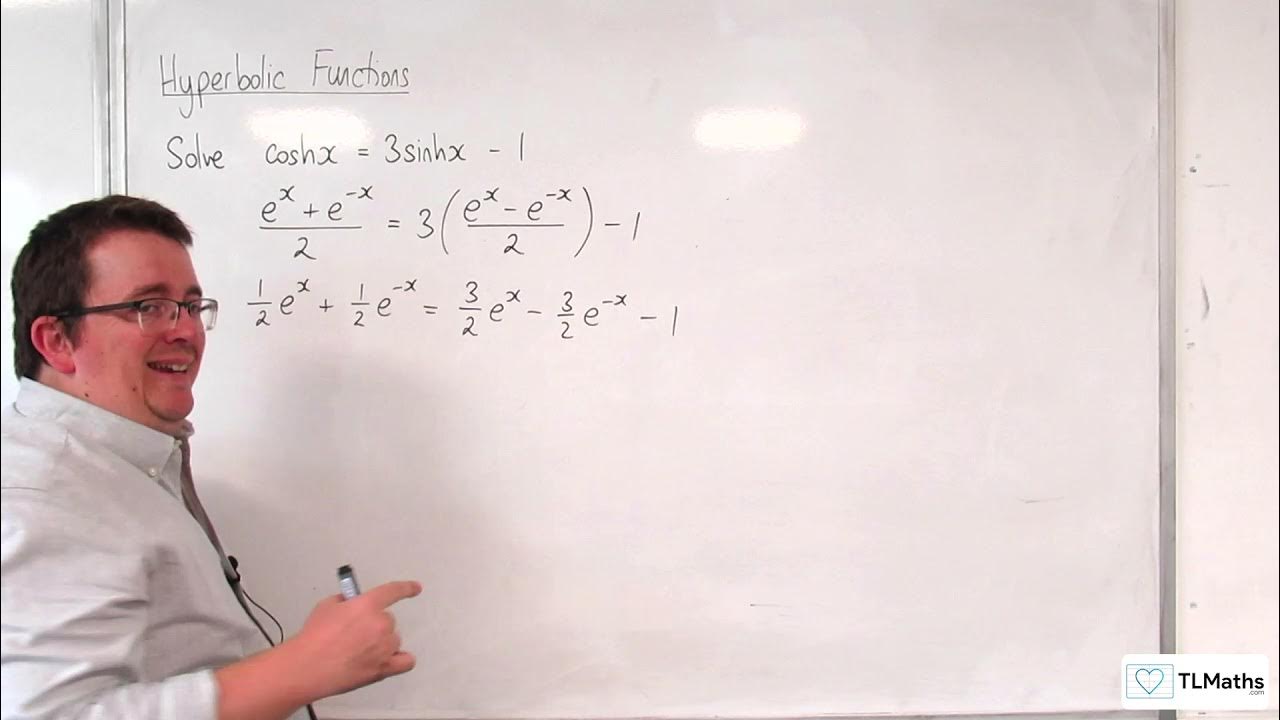 Hyperbolic Functions
Solve coshx = 3sinhx - 1
(e^x + e^-x)/2 = 3((e^x - e^-x)/2) - 1
1/2 e^x + 1/2 e^-x = 3/2 e^x - 3/2 e^-x - 1
TLMaths
.com